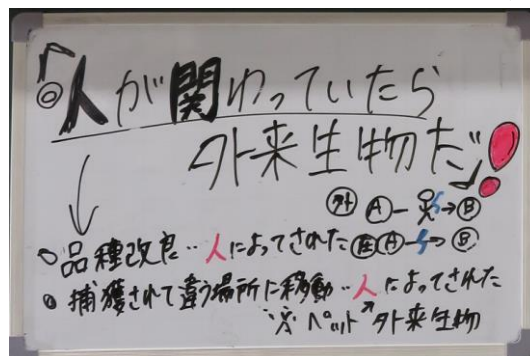 「◎人が関わっていたら
外来生物だ」!
外 A―→B
○品種改良‥人によってされた 在 A―→B
◎捕獲されて違う場所に移動‥人によってされた
※ペット↗外来生物